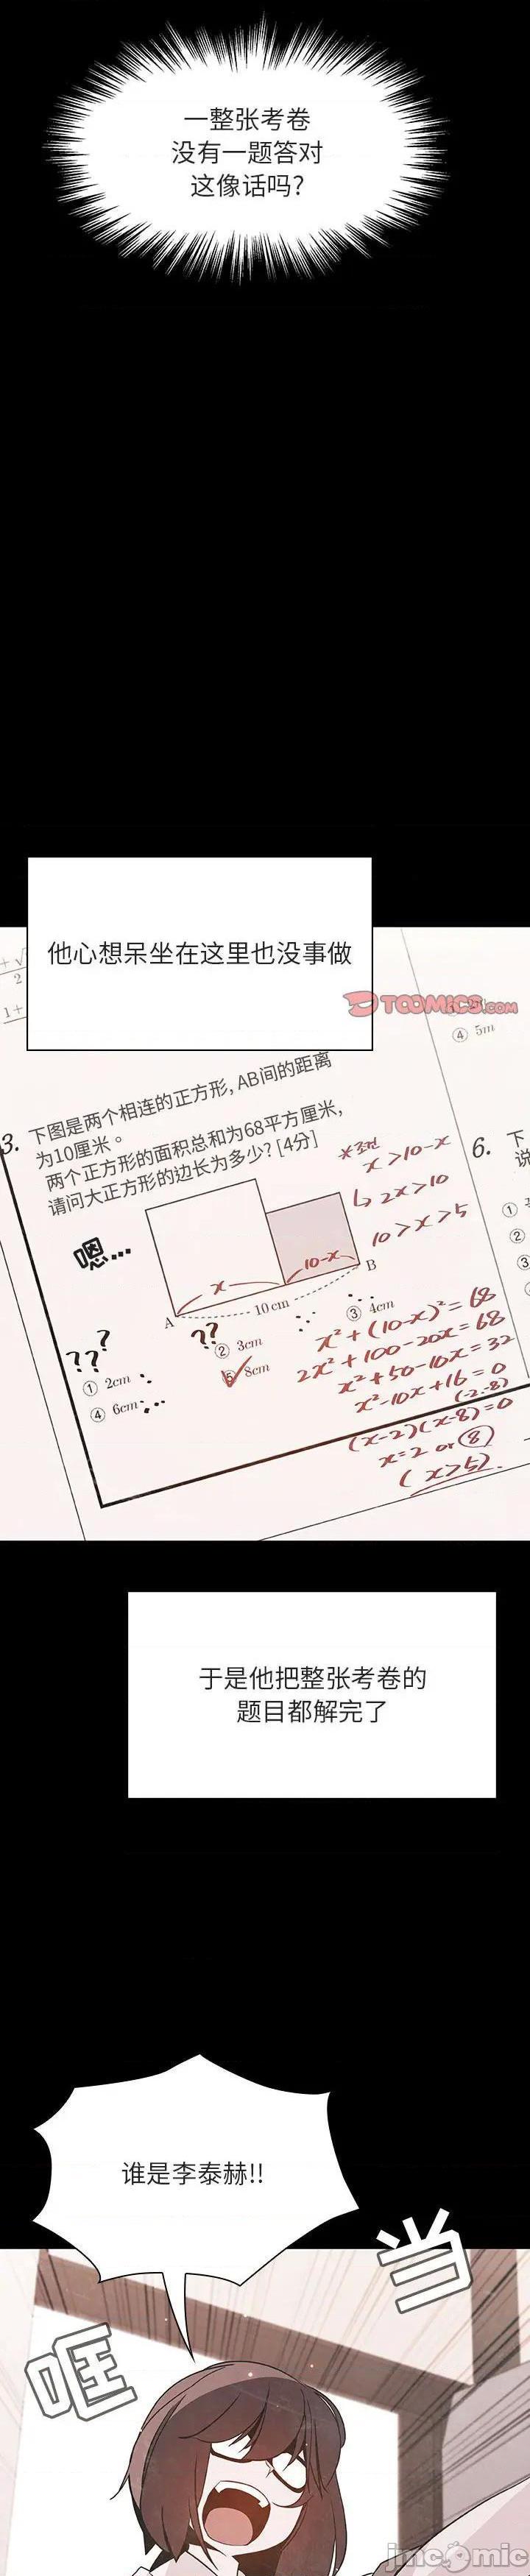 一整张考卷
没有一题答对
这像话吗?
他心想呆坐在这里也没事做
TOOMICS.COM
④ 5m
3. 下图是两个相连的正方形, AB间的距离
为10厘米。
两个正方形的面积总和为68平方厘米,
请问大正方形的边长为多少? [4分]
*조건
x > 10-x
↳ 2x > 10
10 > x > 5
6. 下
说
①
②
③
嗯...
x
10-x
A
10 cm
B
??
?
??
① 2cm
② 3cm
③ 4cm
④ 6cm
⑤ 8cm
x² + (10-x)² = 68
2x² + 100 - 20x = 68
x² + 50 - 10x = 32
x² - 10x + 16 = 0
(-2, -8)
(x-2)(x-8) = 0
x = 2 or ⑧
(x>5)
于是他把整张考卷的
题目都解完了
谁是李泰赫!!
哐
当
jmcomic